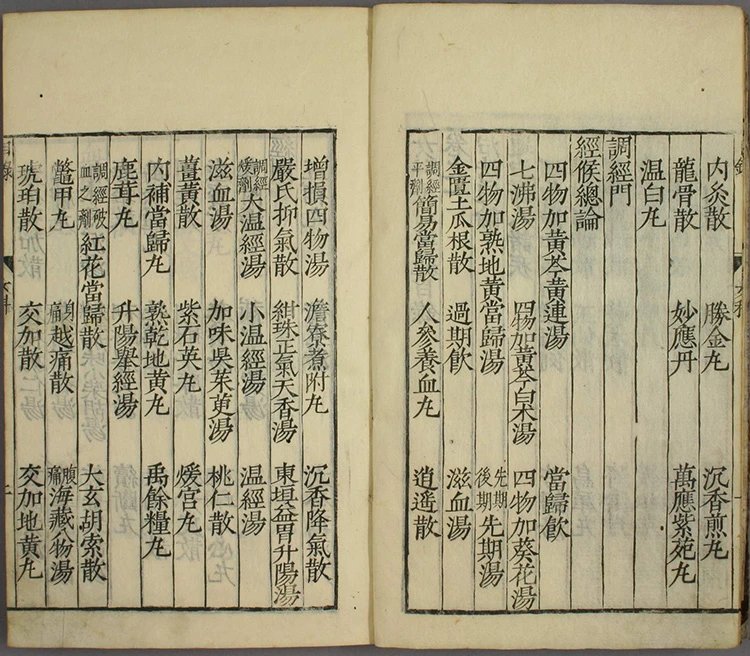 內灸散 勝金丸 沉香煎丸
龍骨散 妙應丹 萬應紫菀丸
温白丸
調經門
經候總論
四物加黃芩黃連湯 當歸飲
七沸湯 四物加黃芩白术湯 四物加葵花湯
四物加熟地黃當歸湯 先期後期先期湯
金匱土瓜根散 過期飲 滋血湯
調經平劑簡易當歸散 人參養血丸 逍遥散
增損四物湯 澹寮煮附丸 沉香降氣散
嚴氏抑氣散 紺珠正氣天香湯 東垣益胃升陽湯
調經煖劑大温經湯 小温經湯 温經湯
滋血湯 加味吳茱萸湯 桃仁散
薑黃散 紫石英丸 煖宮丸
內補當歸丸 熟乾地黃丸 禹餘糧丸
鹿茸丸 升陽舉經湯
調經破血之劑紅花當歸散 大玄胡索散
鱉甲丸 身痛越痛散 腹痛海藏八物湯
琥珀散 交加散 交加地黃丸